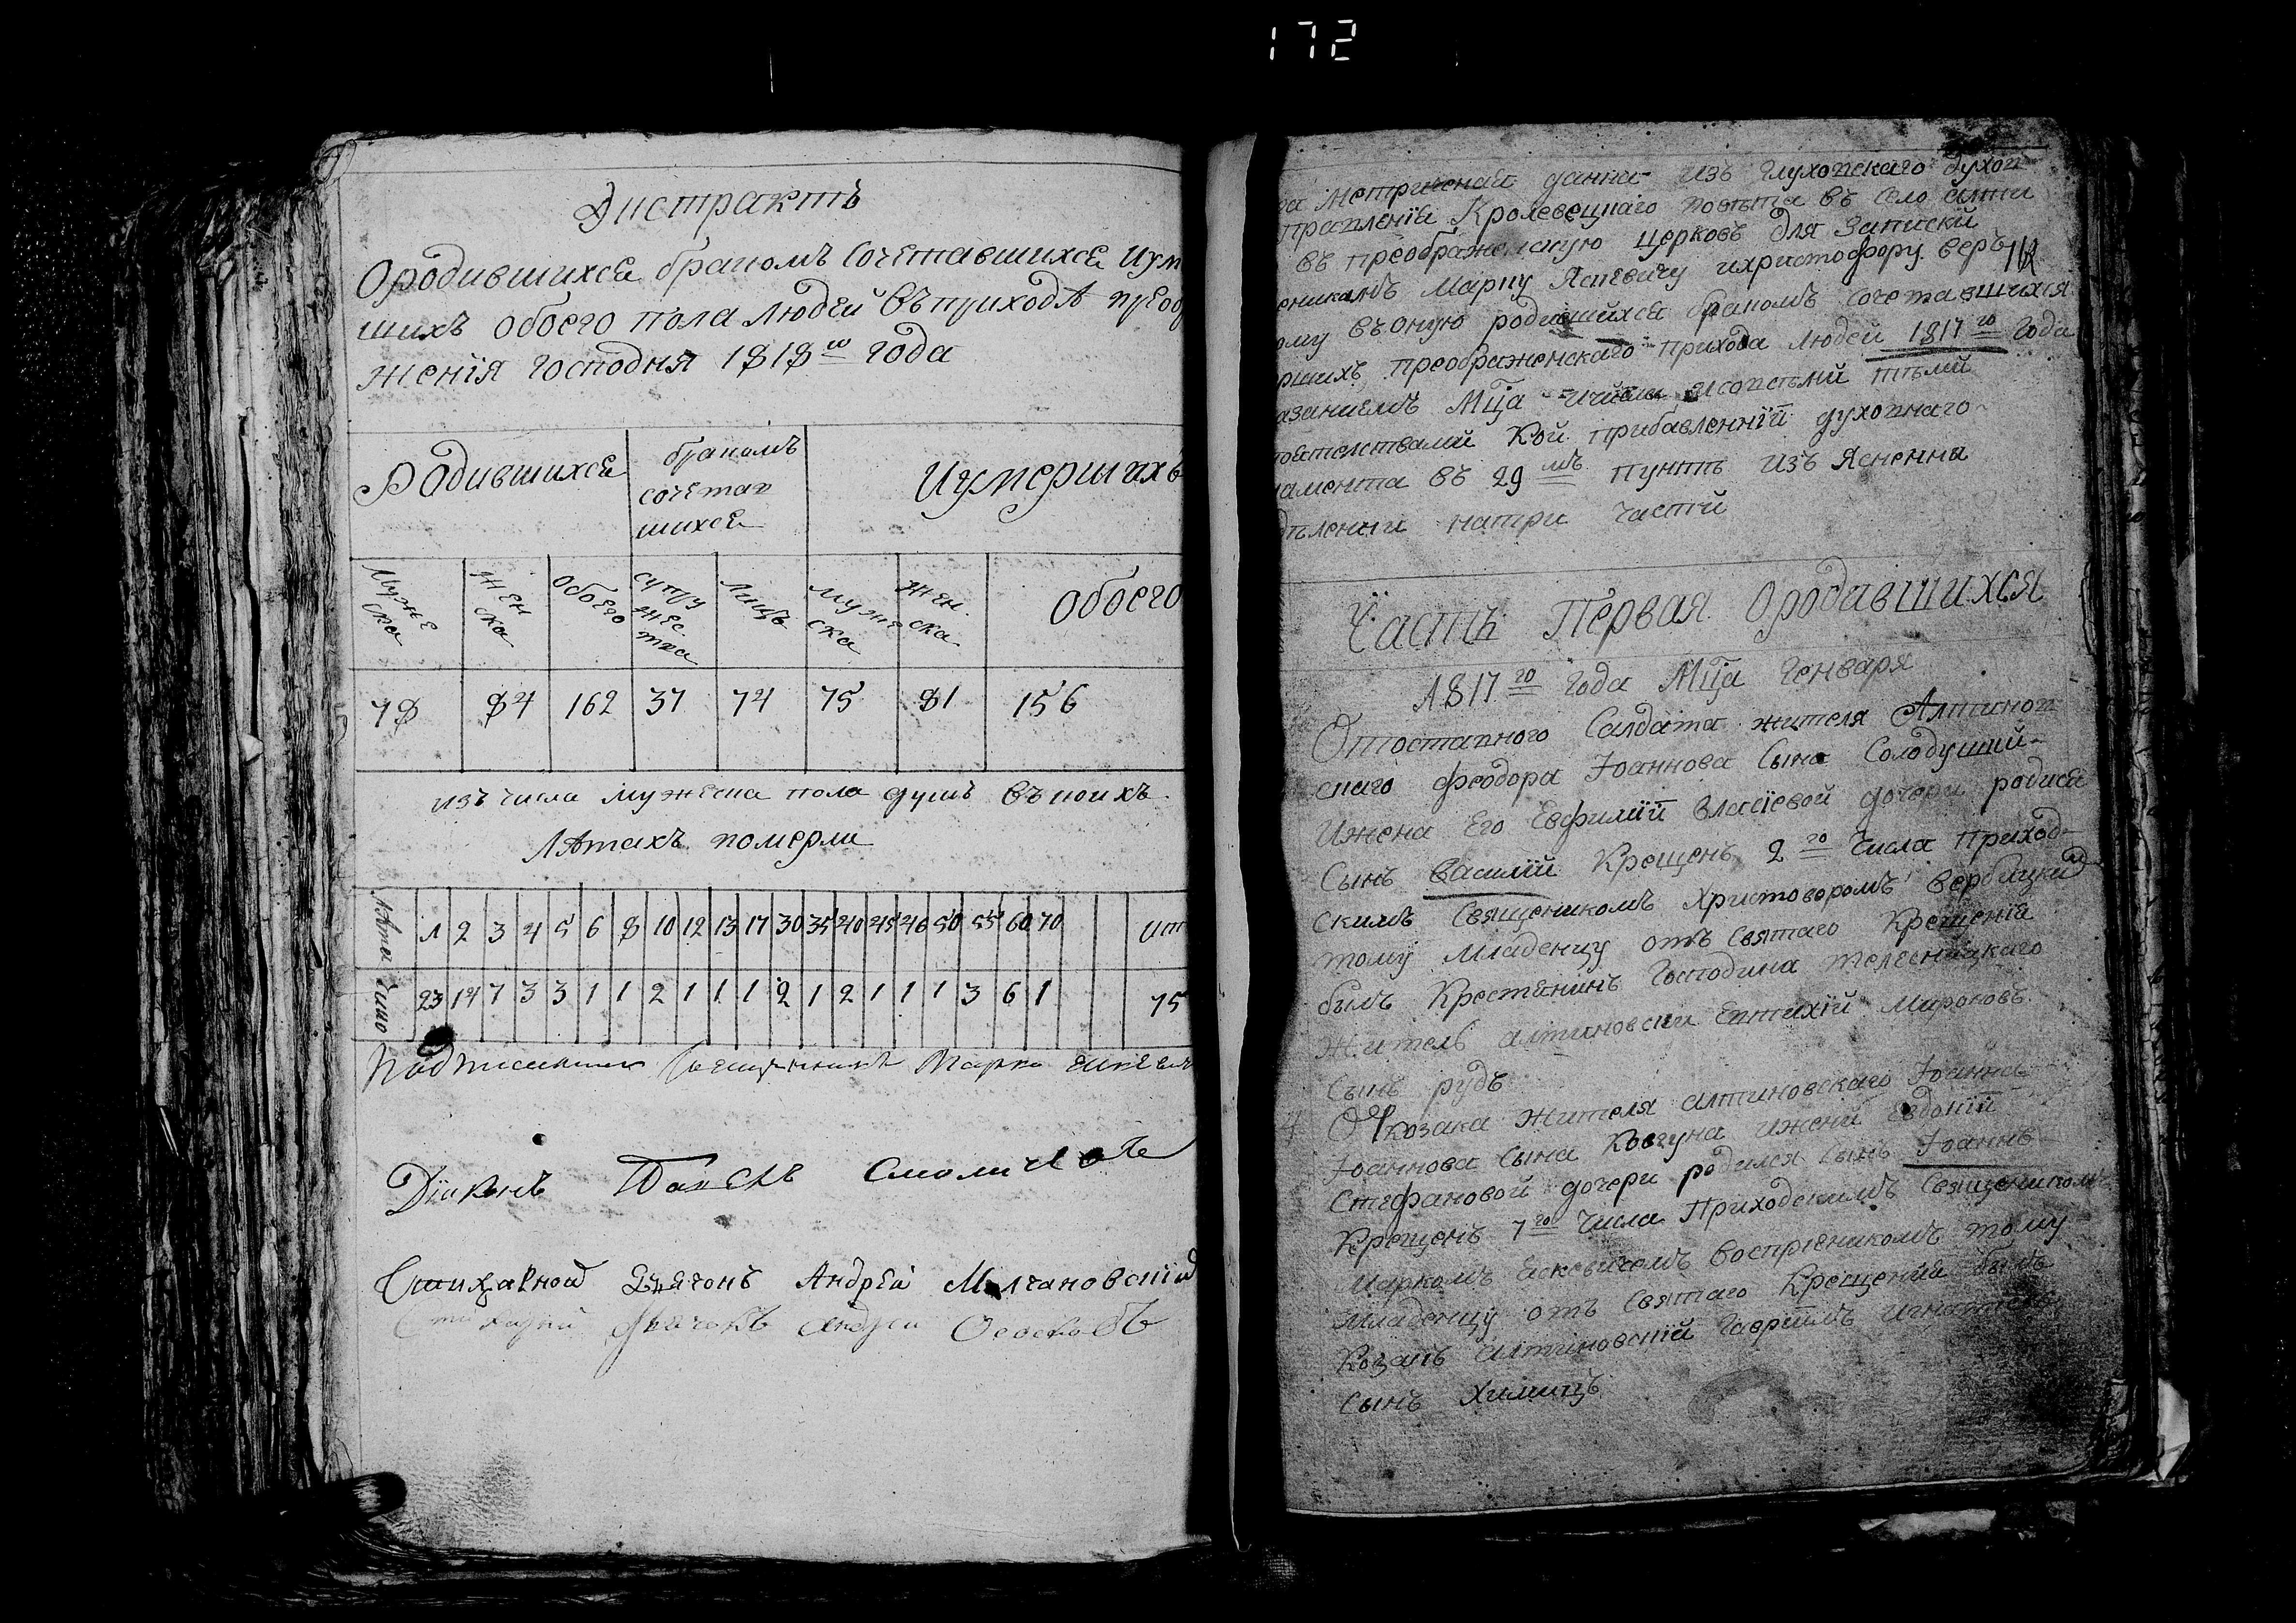 172
Экстрактъ
О родившихся бракомъ сочетавшихся и ум
шихъ обоего пола людей въ приходѣ преоб
женія господня 1818го года
Родившихся
бракомъ
сочетав
шихся
И умершихъ
Муже
ска
Жен
ска
Обоего
супру
жес
тва
Лицъ
муже
ска
жен
ска
обоего
78 84 162 37 74 75 81 156
изъ числа мужеска пола душъ въ коихъ
Лѣтахъ померли
Лѣта 1 2 3 4 5 6 8 10 12 13 17 30 35 40 45 46 50 55 60 70 ит
число 23 14 7 3 3 1 1 2 1 1 1 2 1 2 1 1 1 3 6 1 75
священникъ Марко
Діаконъ
Стихарной Дьячокъ Андрей Молчановскій
Дьячокъ
Метрическая данна изъ Глуховскаго духов
правленія Кролевецкаго повѣта въ село алти
въ преображенскую церковь для записки
Марку Яскевичу и христофору вер
ому въ оную родившихся бракомъ сочетавшихся
ршихъ преображенскаго прихода людей 1817го года
азаніемъ Мца и числа и со всѣми тѣми
кои прибавленній духовнаго
амента въ 29мъ пунктѣ изъяснении
дѣлении на три части
Часть Первая О родившихся
1817го года Мца Генваря
Отоставного Салдата жителя Алтинов
скаго феодора Іоаннова сына
И жена Его Евфиміи власіевой дочери родися
Сынъ василій Крещенъ 2го числа приход
скимъ священикомъ Христофоромъ вербицким
тому младенцу отъ святаго Крещенія
былъ Крестянинъ Господина
житель алтиновски Евтихій Мироновъ
Сынъ рудъ
От козака жителя алтиновскаго Іоанна
Іоаннова сына Ковгуна и жени Евдокіи
Стефановой дочери родился сынъ Іоаннъ
Крещенъ 7го числа Приходскимъ священиком
Маркомъ Яскевичемъ воспріеникомъ тому
младенцу отъ святаго Крещенія былъ
Козакъ алтиновскій Гавріилъ
сынъ Химицъ